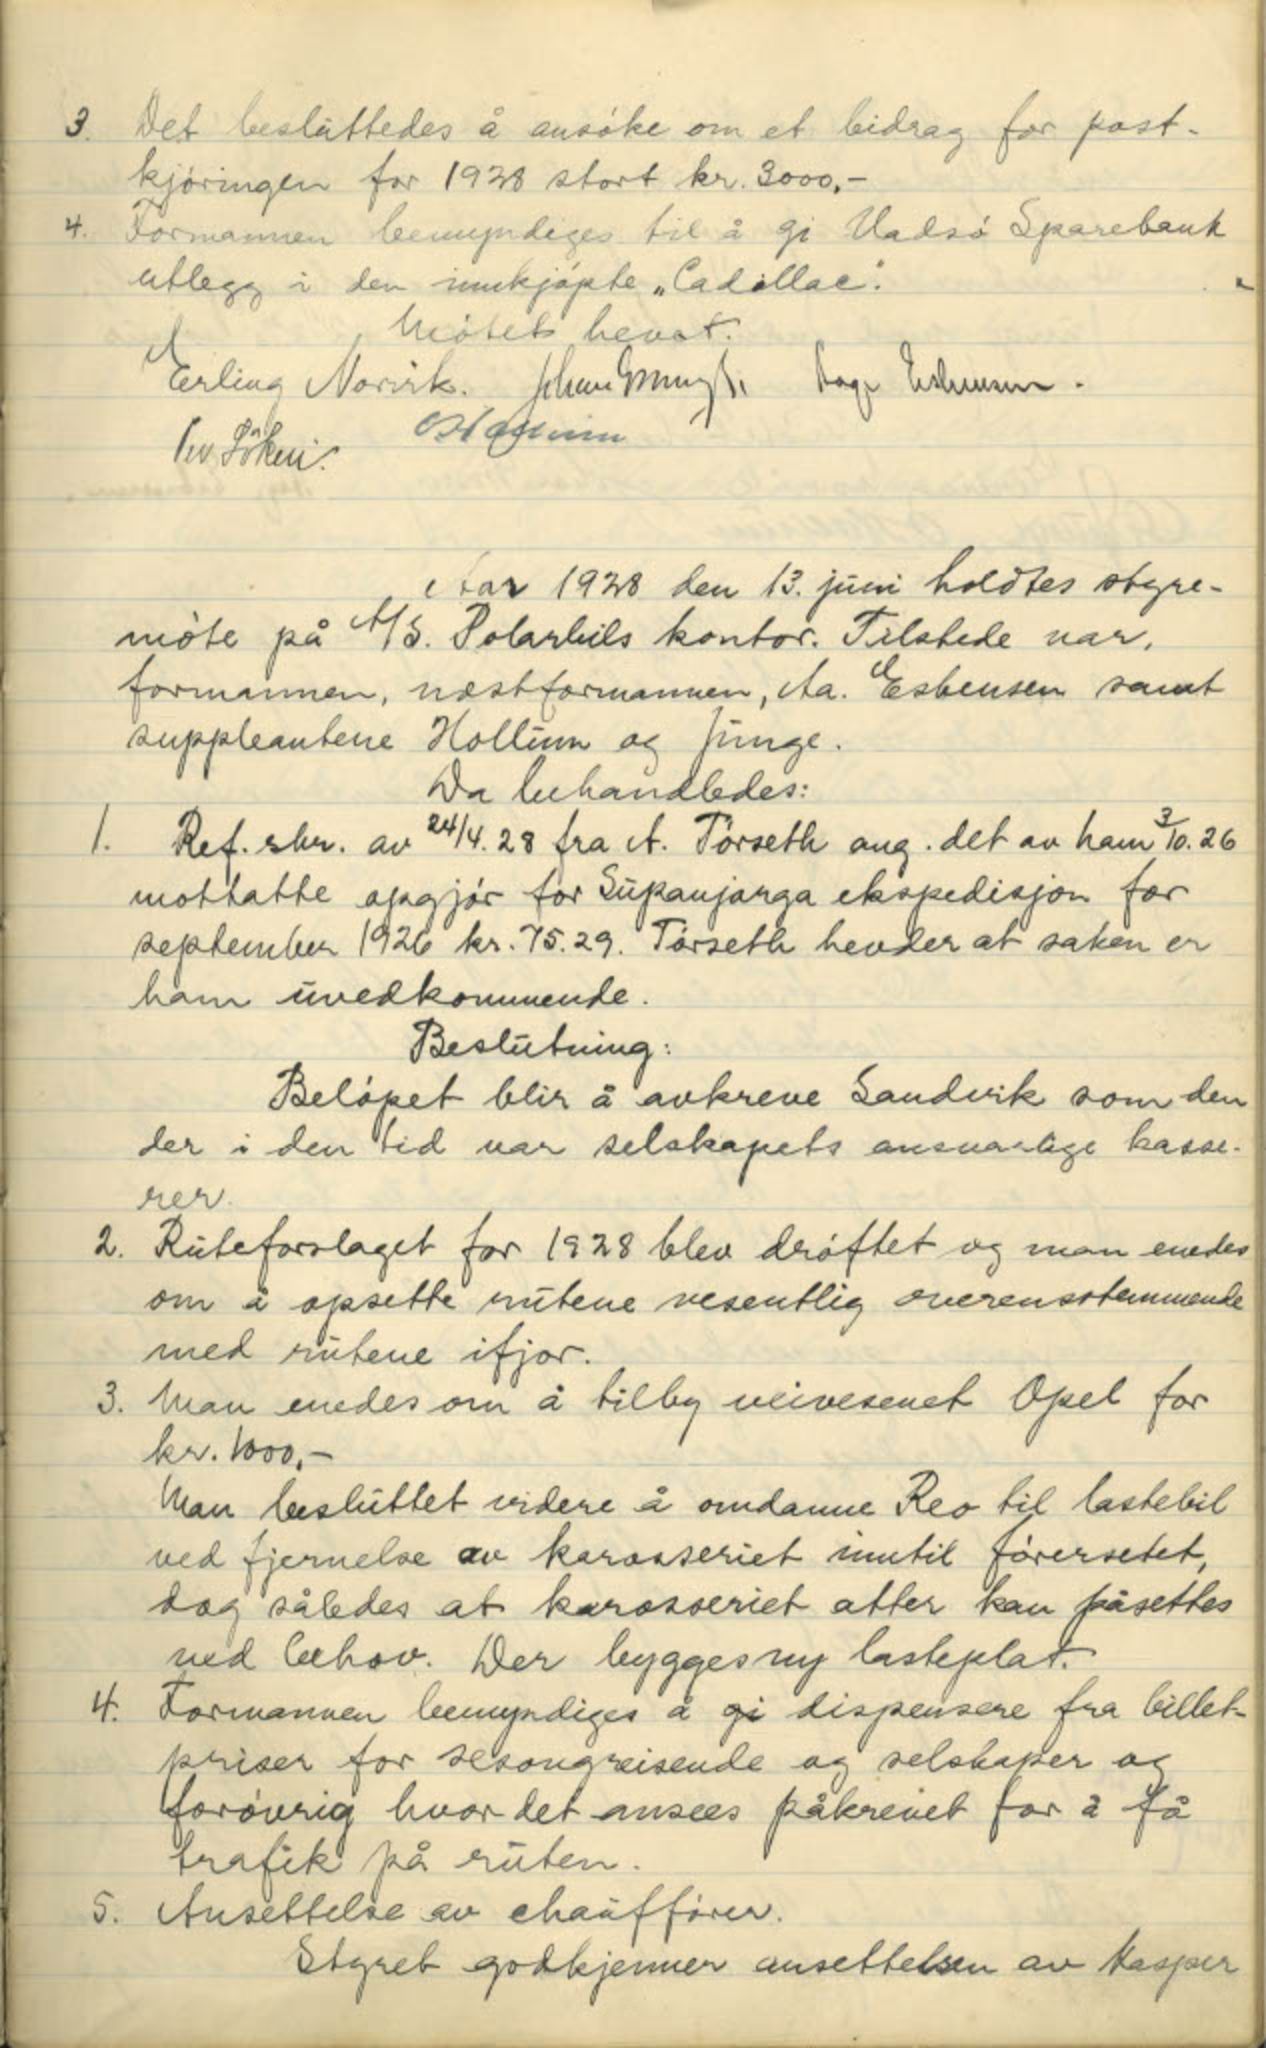 3. Det besluttedes å ansøke om et bidrag for post-
kjøringen for 1928 stort kr. 3000,-
4. Formannen bemyndiges til å gi Vadsø Sparebank
utlegg i den innkjøpte „Cadillac".
Møtet hevet.
Erling Norvik. Aage Esbensen.
Aar 1928 den 13. juni holdtes styre-
møte på A/S. Polarbils kontor. Tilstede var,
formannen, næstformannen, Aa. Esbensen samt
suppleantene Hollum og Junge.
Da behandledes:
1. Ref. skr. av 24/4. 28 fra A. Tørseth ang. det av ham 3/10. 26
mottatte opgjør for Supanjarga ekspedisjon for
september 1926 kr. 75.29. Tørseth hevder at saken er
ham uvedkommende.
Beslutning:
Beløpet blir å avkreve Sandvik som den
der i den tid var selskapets ansvarlige kasse-
rer.
2. Ruteforslaget for 1928 blev drøftet og man enedes
om å opsette rutene vesentlig overensstemmende
med rutene ifjor.
3. Man enedes om å tilby veivesenet Opel for
kr. 1000,-
Man besluttet videre å omdanne Reo til lastebil
ved fjernelse av karosseriet inntil førersetet,
dog således at karosseriet atter kan påsettes
ved behov. Der bygges ny lasteplat.
4. Formannen bemyndiges å gi dispensere fra billet-
priser for sesongreisende og selskaper og
forøvrig hvor det ansees påkrevet for å få
trafik på ruten.
5. Ansettelse av chauffører.
Styret godkjenner ansettelsen av Kasper